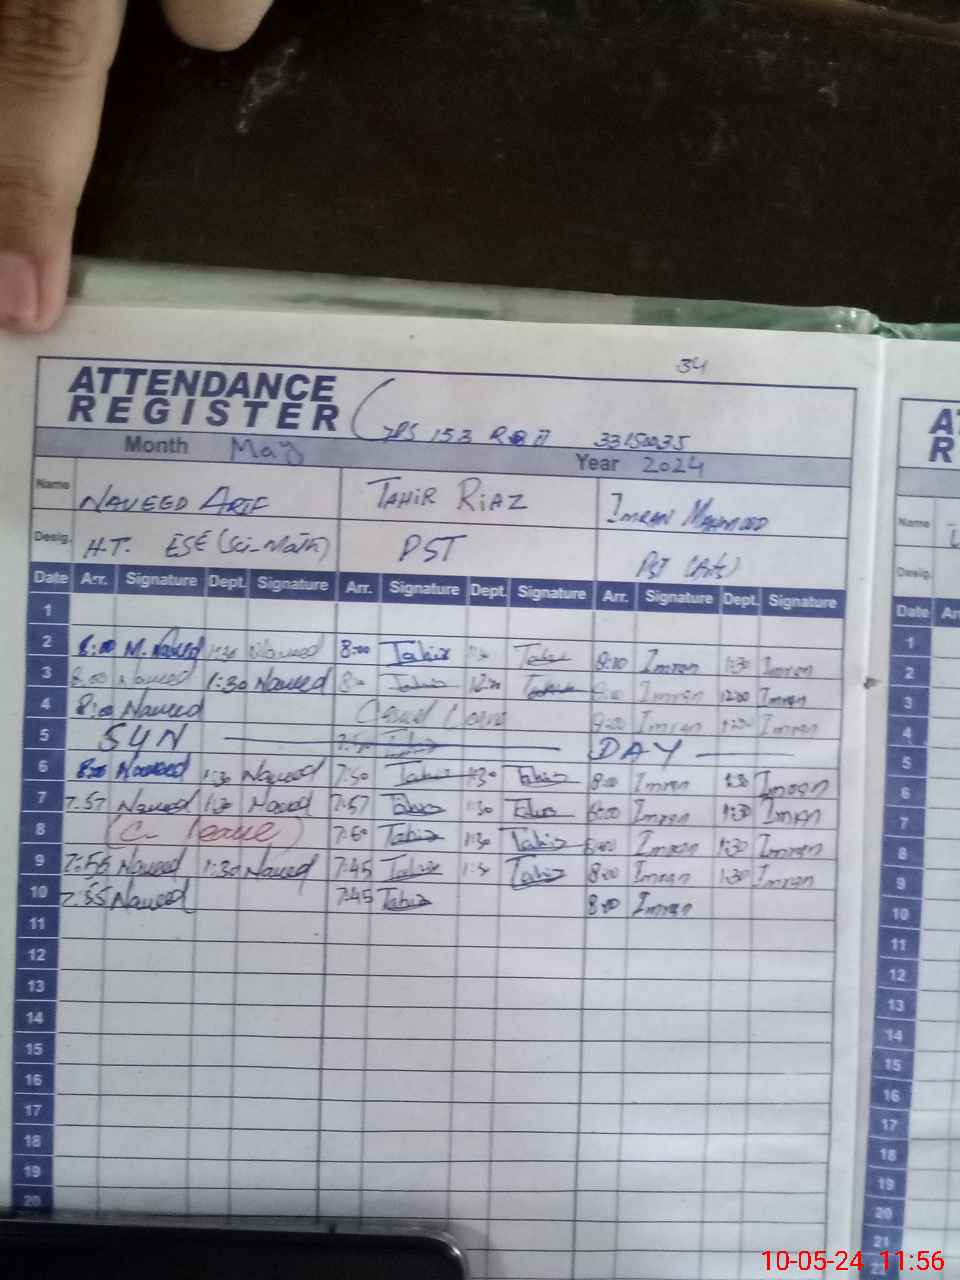 34
ATTENDANCE
REGISTER
GPS 153 RB 33150035
Month May Year 2024
Name NAVEED ARIF TAHIR RIAZ IMRAN MAHMOOD
Desig. H.T. ESE (Sci-Math) PST PST (Arts)
Date Arr. Signature Dept. Signature Arr. Signature Dept. Signature Arr. Signature Dept. Signature
1
2 8:00 M. Naveed 1:30 Naveed 8:00 Tahir Tahir 8:00 Imran 1:30 Imran
3 8:00 Naveed 1:30 Naveed 8:00 Tahir 12:00 Tahir Imran 12:00 Imran
4 8:00 Naveed Casual Leave 8:00 Imran Imran
5 SUN DAY
6 8:00 Naveed 1:30 Naveed 7:50 Tahir 1:30 Tahir 8:00 Imran 1:30 Imran
7 7:57 Naveed 1:30 Naveed 7:57 Tahir 1:30 Tahir 8:00 Imran 1:30 Imran
8 (C. leave) 7:50 Tahir 1:30 Tahir 8:00 Imran 1:30 Imran
9 7:55 Naveed 1:30 Naveed 7:45 Tahir 1:30 Tahir 8:00 Imran 1:30 Imran
10 7:55 Naveed 7:45 Tahir 8:00 Imran
11
12
13
14
15
16
17
18
19
20
A
R
Name
Desig.
Date Ar
1
2
3
4
5
6
7
8
9
10
11
12
13
14
15
16
17
18
19
20
21
10-05-24 11:56